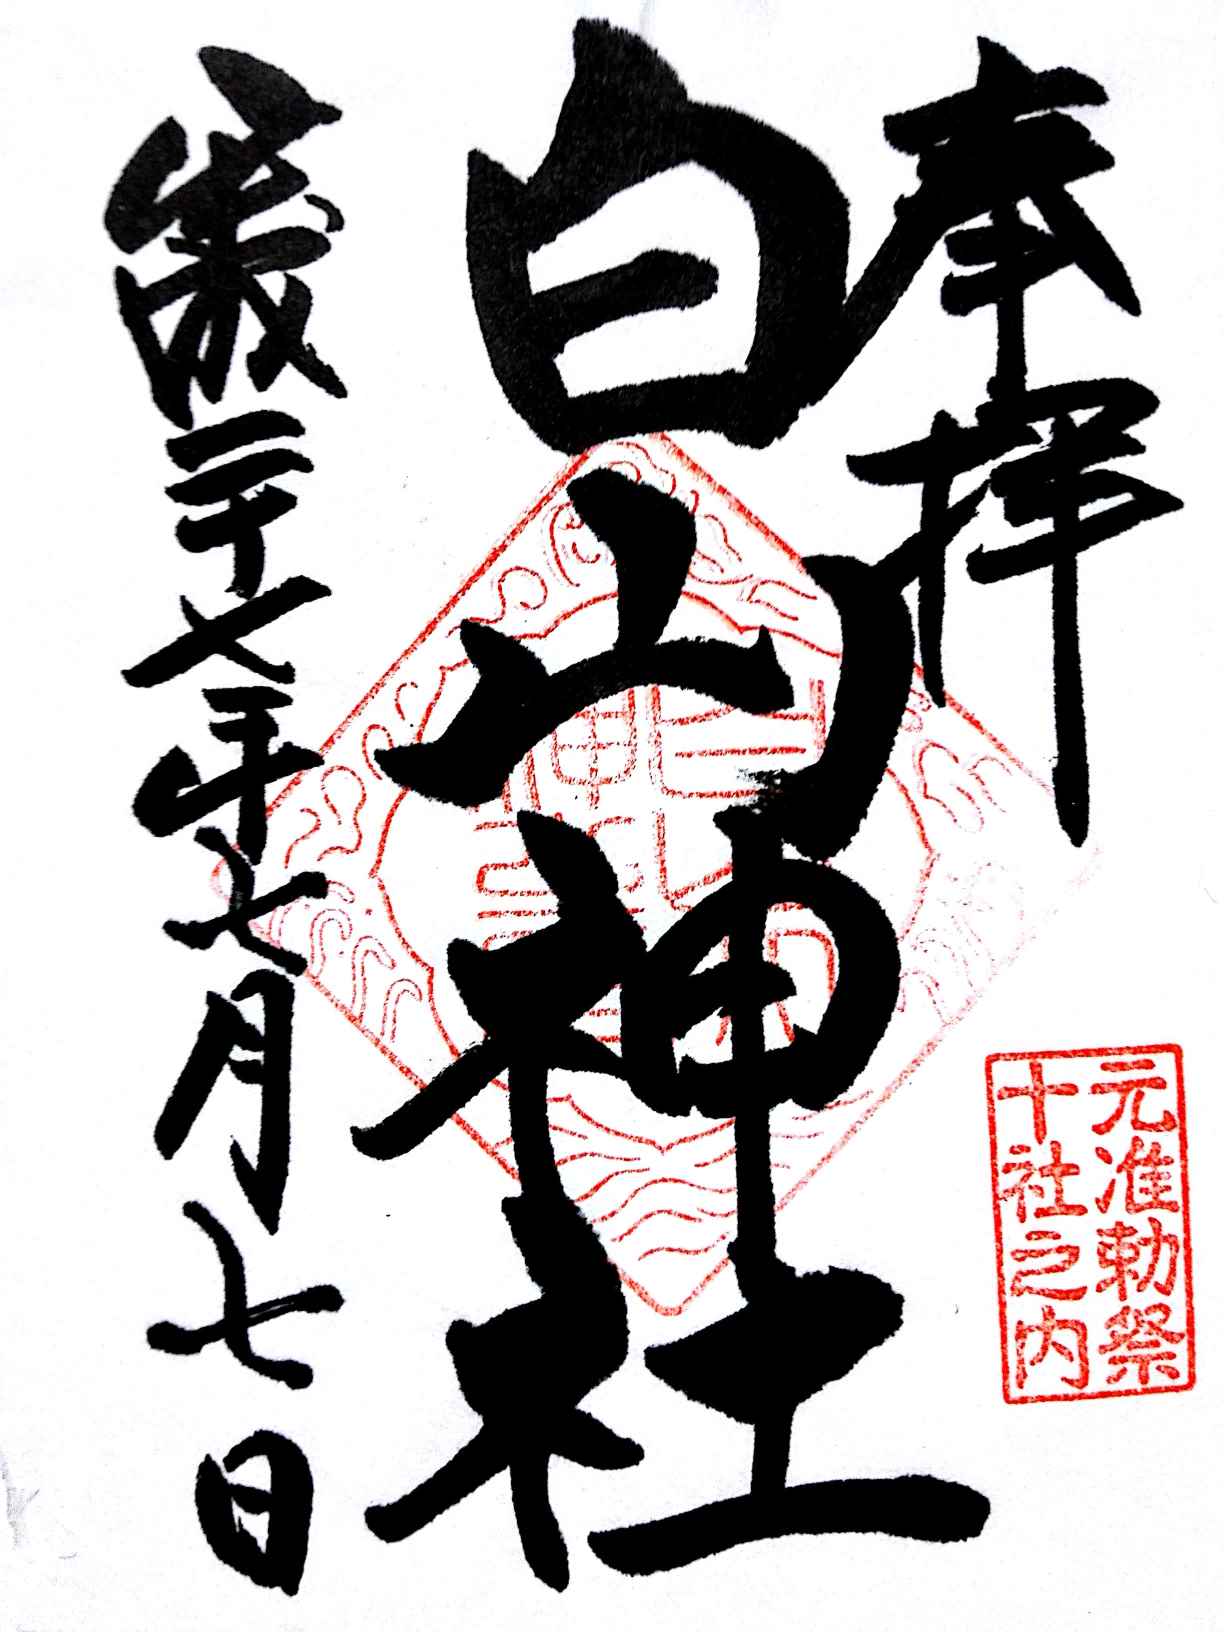 奉拝
元准勅祭
十社之内
白山神社
二十七年七月七日